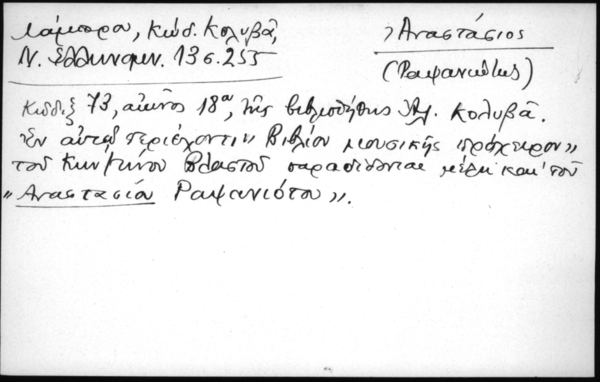 Λάμπρου, Κώδ. Κολυβᾶ,
Ν. Ἑλληνομν. 13 σ. 255
Ἀναστάσιος
(Ραψανιώτης)
Κῶδιξ 73, αἰῶνος 18ου, τῆς βιβλιοθήκης Ἀλ. Κολυβᾶ.
Ἐν αὐτῷ περιέχοντι « Βιβλίον μουσικῆς πρόχειρον »
τοῦ Κων/τίνου Βλαστοῦ παραδίδονται μέλη καὶ τοῦ
« Αναστασίου Ραψανιότου ».